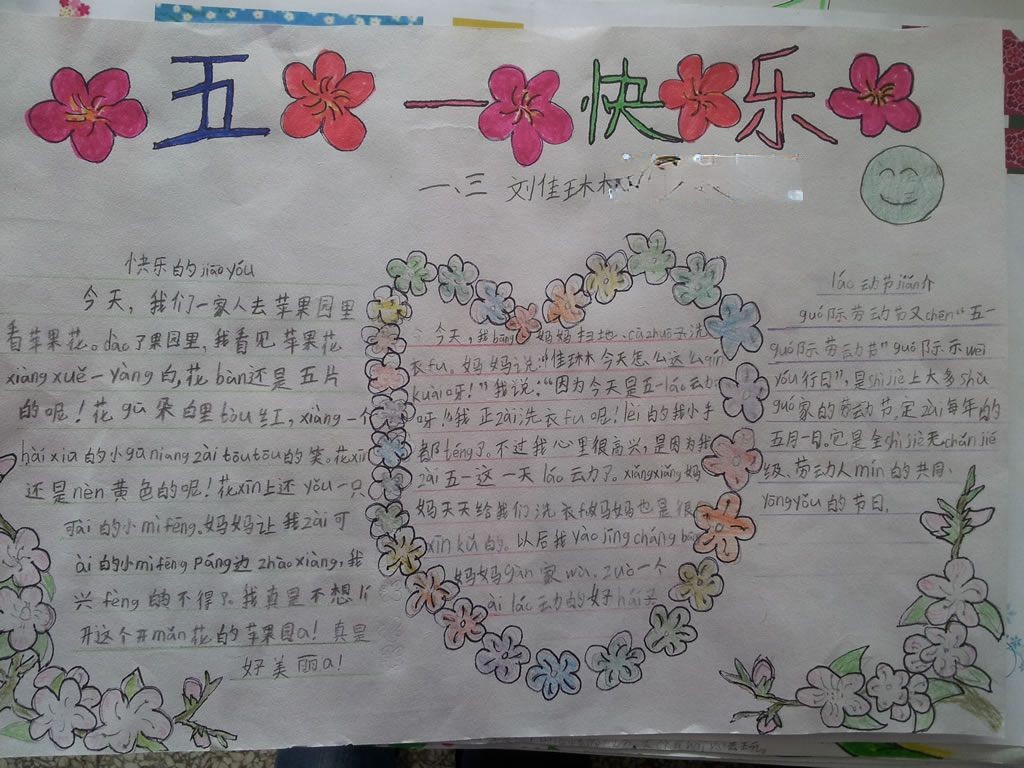 五一快乐
一、三 刘佳琳
快乐的jiāo yóu
今天，我们一家人去苹果园里
看苹果花。dào了果园里，我看见苹果花
xiàng xuě一yàng白，花bàn还是五片
的呢！花gū朵白里tòu红，xiàng一个
hài xiū的小gū niang zài tōu tōu的笑。花xīn
还是nèn黄色的呢！花xīn上还yǒu一只
可ài的小mì fēng。妈妈让我zài可
ài的小mì fēng páng边zhào xiàng，我
兴fèng的不得了。我真是不想lí
开这个开mǎn花的苹果园a！真是
好美丽a！
今天，我bāng妈妈扫地、cā zhuō子洗
衣fu。妈妈说：“佳琳今天怎么这么qín
kuài呀！”我说：“因为今天是五一láo动
呀！”我正zài洗衣fu呢！lèi的我小手
都téng了。不过我心里很高兴，是因为我
zài五一这一天láo动了。xiǎng xiǎng妈
妈天天给我们洗衣fu妈妈也是很
xīn kǔ的。以后我yào jīng cháng bāng
妈妈gàn家wù，zuò一个
ài láo动的好hái子
láo动节jiǎn介
guó际劳动节又chēn“五一
guó际劳动节”guó际示wēi
yóu行日”，是shì jiè上大多shù
guó家的劳动节，定zài每年的
五月一日。它是全shì jiè无chǎn jiē
级、劳动人mín的共同、
yōng yǒu的节日。